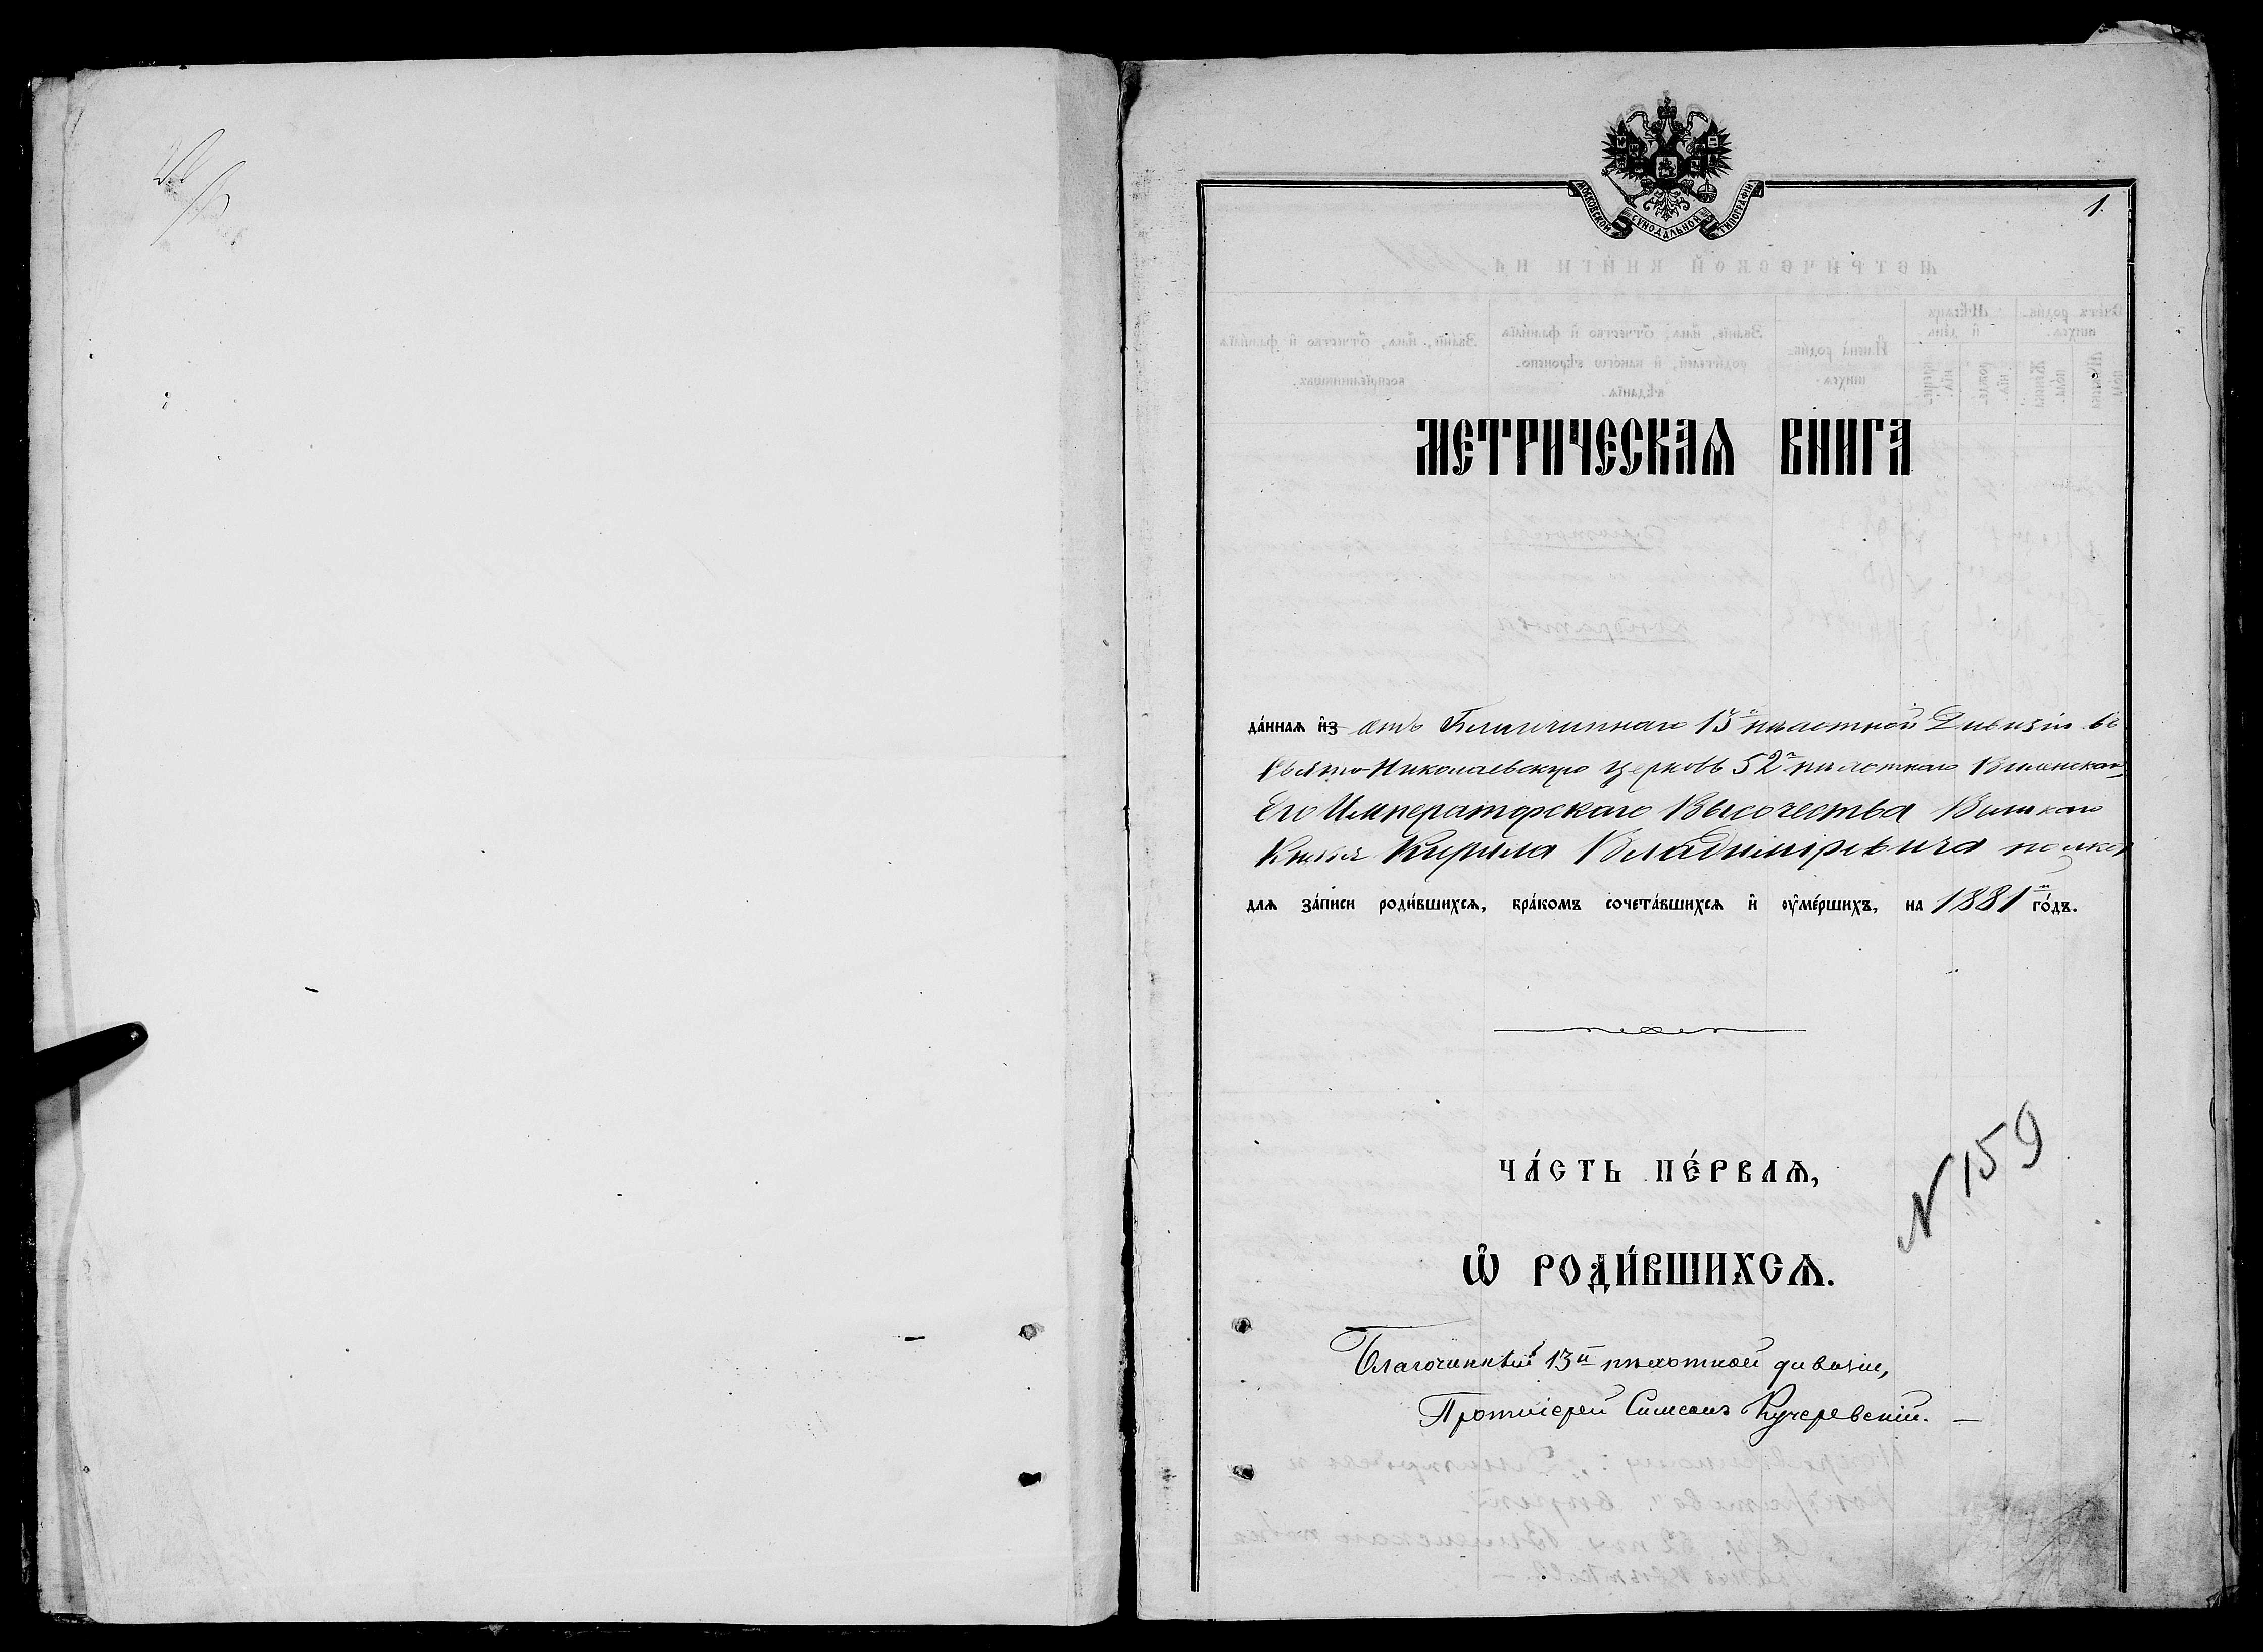 1.
МОСКОВСКОЙ СѴНОДАЛЬНОЙ ТИПОГРАФІИ
МЕТРИЧЕСКАѦ КНИГА
да́ннаѧ и҆з отъ Благочиннаго 13й пѣхотной Дивизіи въ
Свято-Николаевскую церковь 52го пѣхотнаго Виленскаго
Его Императорскаго Высочества Великаго
Князя Кирила Владиміровича полка
для за́писи роди́вшихсѧ, бра́комъ сочета́вшихсѧ и҆ ᲂу҆ме́ршихъ, на 1881й го́дъ.
ЧА́СТЬ ПЕ́РВАѦ,
Ѡ҆ РОДИ́ВШИХСѦ.
N 159
Благочинный 13й пѣхотной дивизіи,
Протоіерей Симеонъ Кучеревскій. —